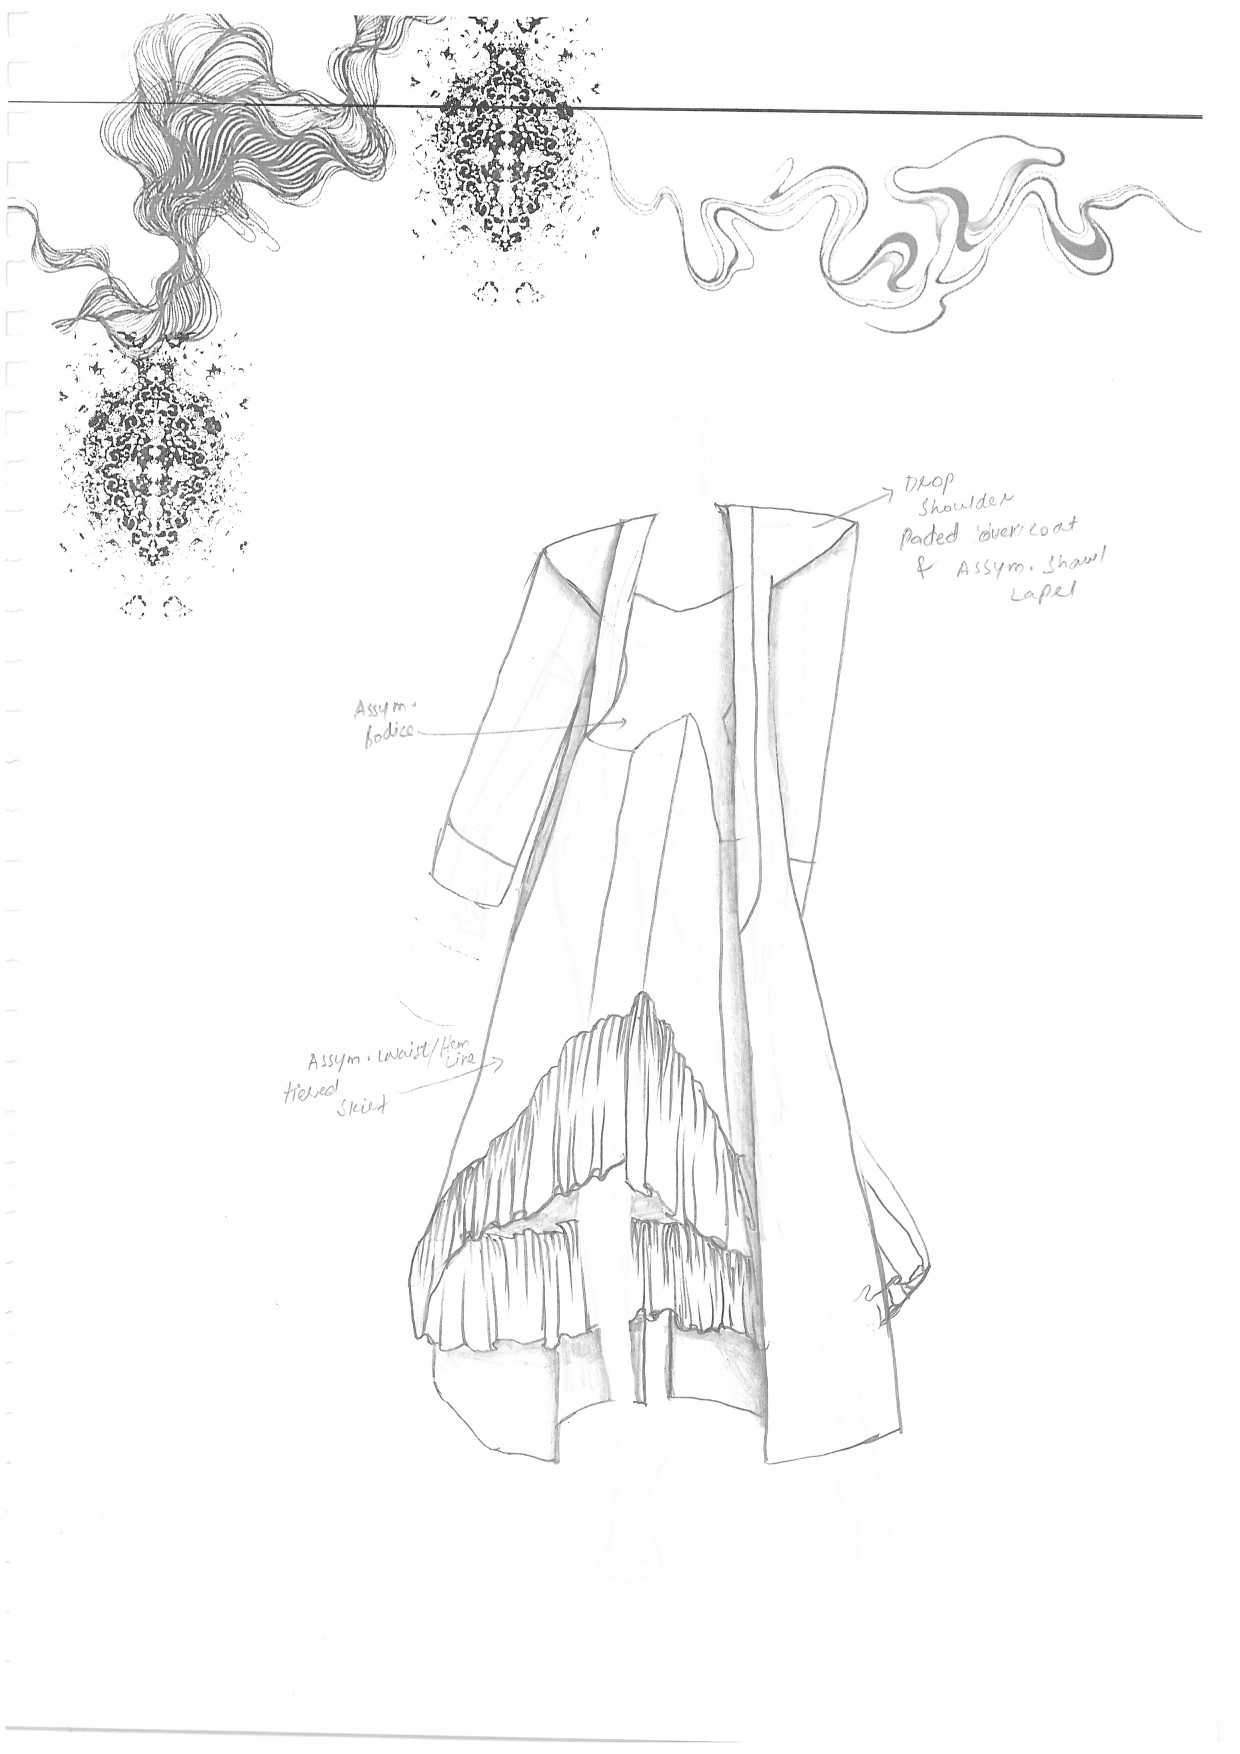 Drop
shoulder
Paded overcoat
& Assym. shawl
Lapel
Assym.
bodice
Assym. Waist/Hem
Line
tiered
skirt